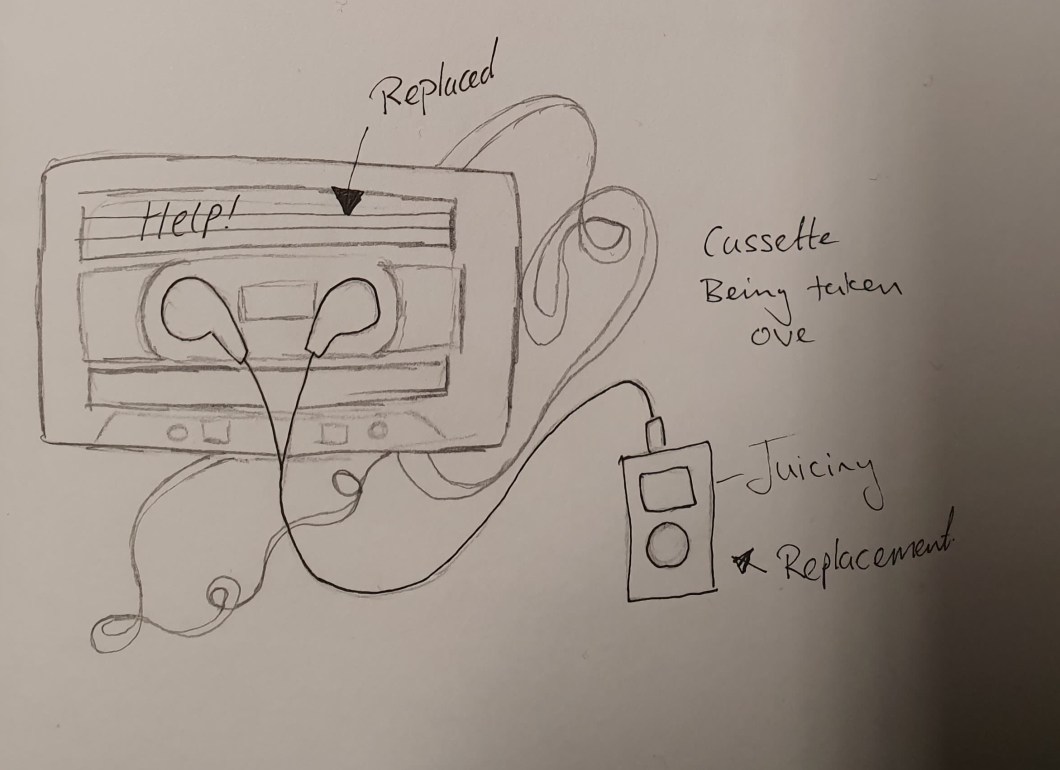 Replaced
Help!
Cassette
Being taken
ove
Juiciny
Replacement